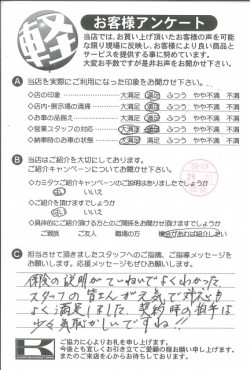 軽
お客様アンケート
当店では、お買い上げ頂いたお客様の声を可能
な限り現場に反映し、お客様により良い商品と
サービスを提供する事に努めています。
大変お手数ですが是非お声をお聞かせ下さい。
A 当店を実際にご利用になった印象をお聞かせ下さい。
◇店の印象 大満足 満足 ふつう やや不満 不満
◇店内・展示場の清掃 大満足 満足 ふつう やや不満 不満
◇お車の品揃え 大満足 満足 ふつう やや不満 不満
◇営業スタッフの対応 大満足 満足 ふつう やや不満 不満
◇納車時のお車の状態 大満足 満足 ふつう やや不満 不満
B 当店はご紹介を大切にしております。
ご紹介キャンペーンについてお聞かせ下さい。
◇カミタケご紹介キャンペーンのご説明はありましたでしょうか
はい いいえ
◇ご紹介は頂けますでしょうか
はい いいえ
◇具体的にご紹介頂ける方とのご関係をお聞かせ頂けますでしょうか
ご親族 ご友人 職場の方 機会があれば紹介したい
C 担当させて頂きましたスタッフへのご指摘、ご指導メッセージを
お願いします。応援メッセージもぜひお願いします。
保険の説明がていねいでよくわかった
スタッフの皆さんが元気で対応も
よく満足しました。契約時の拍手は
少々気恥かしいですね!!
K
ご協力に心よりお礼を申し上げます。
今後とも宜しくお引き立てご愛顧の程お願い申し上げます。
またのご来店を心からお待ちしております。